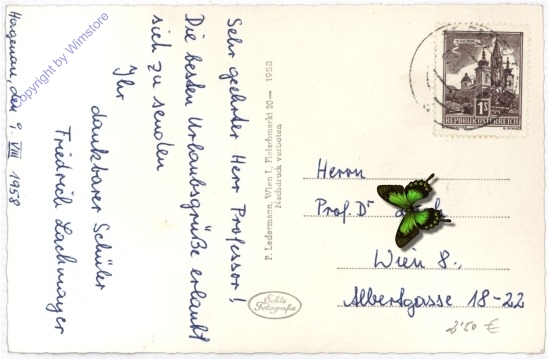 Hargenau, den 9. VIII 1958
Sehr geehrter Herr Professor!
Die besten Urlaubsgrüße erlaubt
sich zu senden
Ihr
dankbarer Schüler
Friedrich Lachmayer
Copyright by Wimstore
P. Ledermann, Wien I., Fleischmarkt 20 — 1958
Nachdruck verboten
Echte
Fotografie
1S
REPUBLIK ÖSTERREICH
Herrn
Prof. Dr
Wien 8.,
Albertgasse 18-22
2'50 €